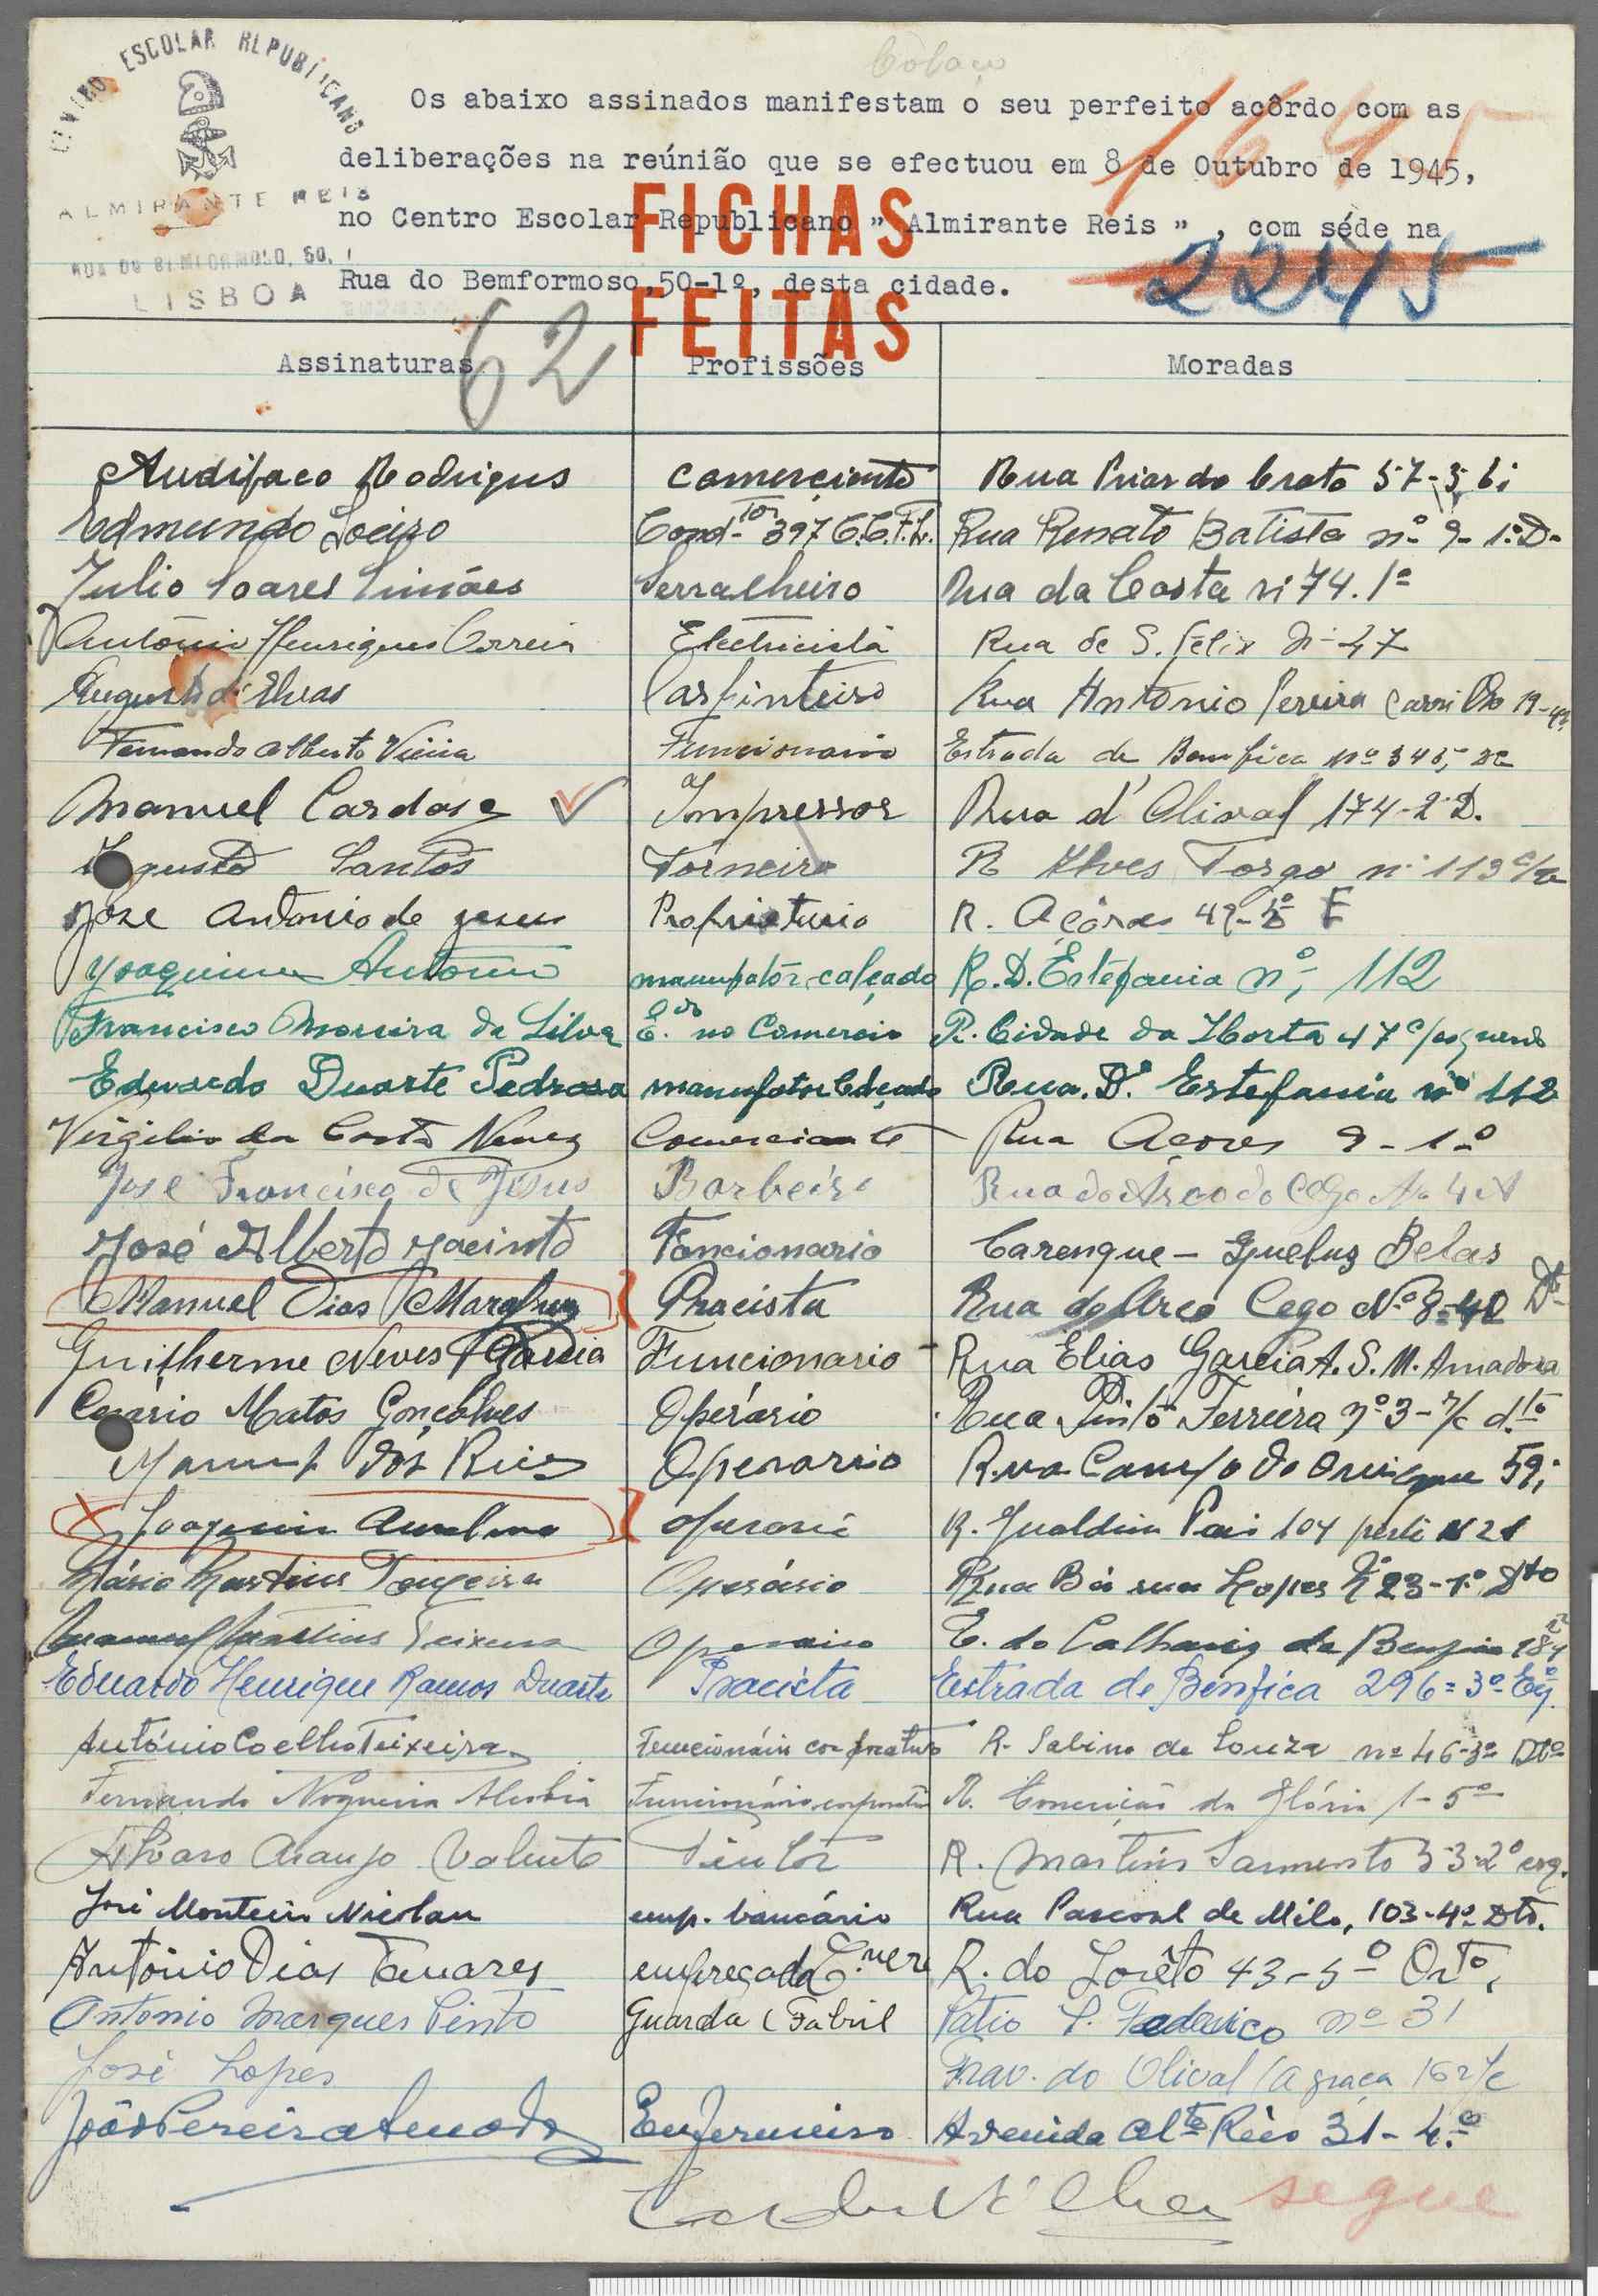 CENTRO ESCOLAR REPUBLICANO
ALMIRANTE REIS
RUA DO BEMFORMOSO, 50, 1
LISBOA
Os abaixo assinados manifestam o seu perfeito acôrdo com as
deliberações na reúnião que se efectuou em 8 de Outubro de 1945,
no Centro Escolar Republicano " Almirante Reis " , com séde na
Rua do Bemformoso,50-1º, desta cidade.
FICHAS
FEITAS
2245
62
Assinaturas Profissões Moradas
Audifaco Rodrigues comerciante Rua Prior do Crato 57-3
Edmundo Loeiro Cond-tor 397 C.C.F.L. Rua Renato Batista nº 9-1º D-
Julio Soares Simões Serralheiro Rua da Costa nº 74.1º
António Henriques Correia Electricista Rua de S. Felix nº 47
Augusto d'Elvas Carpinteiro Rua Antonio Pereira Carrilho 19-4º
Fernando Alberto Vieira Funcionario Estrada de Bemfica nº 345,
Manuel Cardoso Impressor Rua d'Olival 174-2º D.
Santos Torneiro R Alves Torgo nº 113
José Antonio de Jesus Proprietario R. Açôres 49- E
Joaquim Antonio manufatôr calçado R. D. Estefania nº, 112
Francisco Moreira da Silva E.do no Comercio R. Cidade da Horta 47
Eduardo Duarte Pedrosa manufator Calçado Rua. D. Estefania nº 112
Virgilio da Costa Nunes Comerciante Rua Açores 9-1º
José Francisco de Jesus Barbeiro Rua do Arco do Cego Nº 4A
José Alberto Jacinto Foncionario Carenque - Queluz Belas
Manuel Dias Pracista Rua do Arco Cego Nº 8-4º Dto
Guilherme Neves Funcionario Rua Elias Garcia A. S. M. Amadora
Matos Gonçalves Operário Rua Pinto Ferreira nº 3-r/c d.to
Manuel dos Reis Operario Rua Campo de Ourique 59,
Joaquim Anselmo operario R. Gualdim Pais 104 N 21
Mário Martins Teixeira Operário Rua Lopes Nº 23-1º Dto
Manuel Martins Teixeira Operario E. do Calhariz de Bemfica 187
Eduardo Henrique Ramos Duarte Pracista Estrada de Benfica 296=3º Eq.
António Coelho Teixeira Funcionário corporativo R. Sabino de Souza nº 46-3º Dto
Fernando Nogueira Funcionário corporativo R. Conceição da Glória 1-5º
Alvaro Araujo Valente Pintor R. Martins Sarmento 33-2º esq.
José Monteiro Nicolau emp. bancário Rua Pascoal de Melo, 103-4º Dto.
António Dias Tavares empregado R. do Loreto 43-5º Dto,
Antonio Marques Pinto Guarda Fabril Patio Federico nº 31
José Lopes Trav. do Olival (a graça 16 r/c
João Pereira Enfermeiro Avenida Alte Reis 31-4º
segue